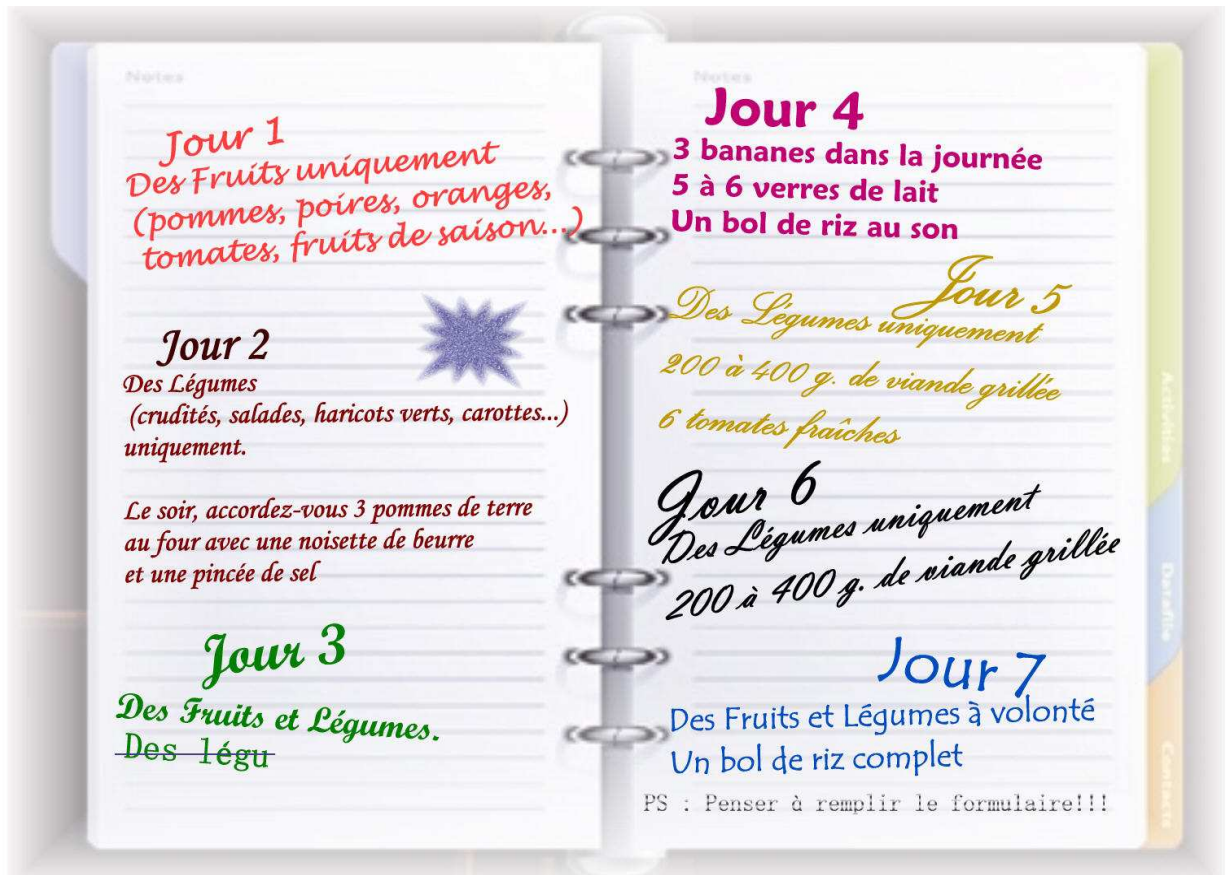 Notes
Jour 1
Des Fruits uniquement
(pommes, poires, oranges,
tomates, fruits de saison...)
Jour 2
Des Légumes
(crudités, salades, haricots verts, carottes...)
uniquement.
Le soir, accordez-vous 3 pommes de terre
au four avec une noisette de beurre
et une pincée de sel
Jour 3
Des Fruits et Légumes.
Des légu
Notes
Jour 4
3 bananes dans la journée
5 à 6 verres de lait
Un bol de riz au son
Jour 5
Des Légumes uniquement
200 à 400 g. de viande grillée
6 tomates fraîches
Jour 6
Des Légumes uniquement
200 à 400 g. de viande grillée
Jour 7
Des Fruits et Légumes à volonté
Un bol de riz complet
PS : Penser à remplir le formulaire!!!
Activities
Datafile
Contacts